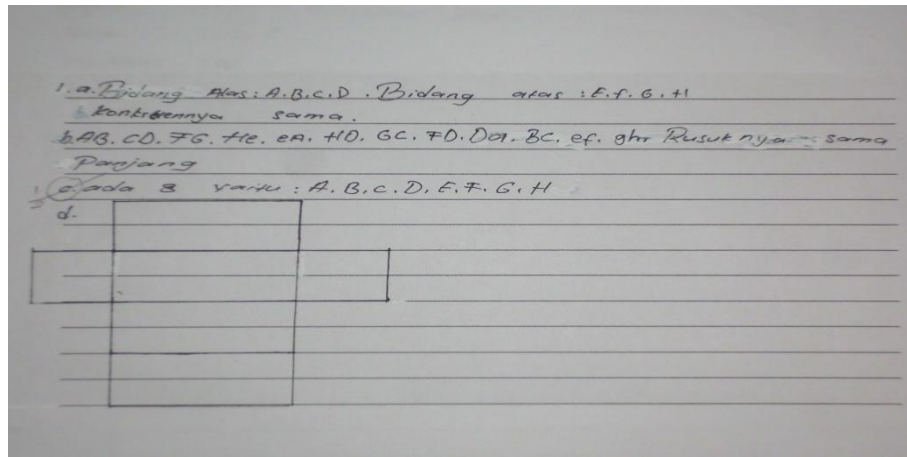 1. a. Bidang Alas : A.B.C.D . Bidang atas : E.f.G.H
konkrtennya sama.
b. AB. CD. FG. He. eA. HD. GC. FD. Da. BC. ef. gh Rusuknya sama
Panjang
c. ada 8 yaitu : A.B.C.D.E.F.G.H
d.